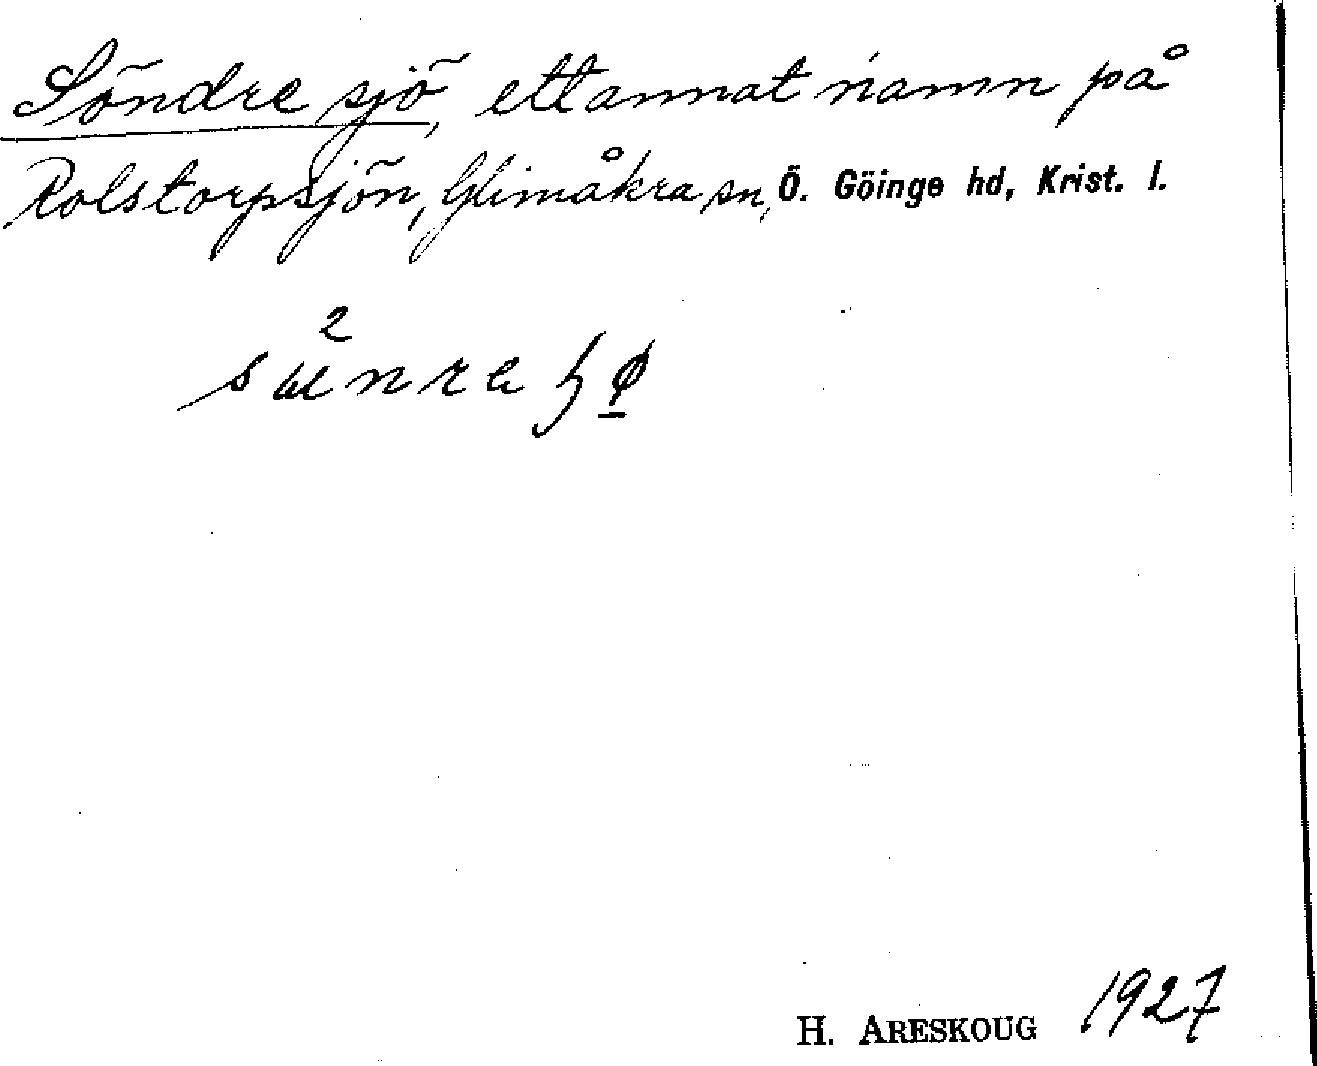 Söndre sjö, ett annat namn på
Rolstorpsjön, Glimåkra sn, Ö. Göinge hd, Krist. l.
H. ARESKOUG 1927